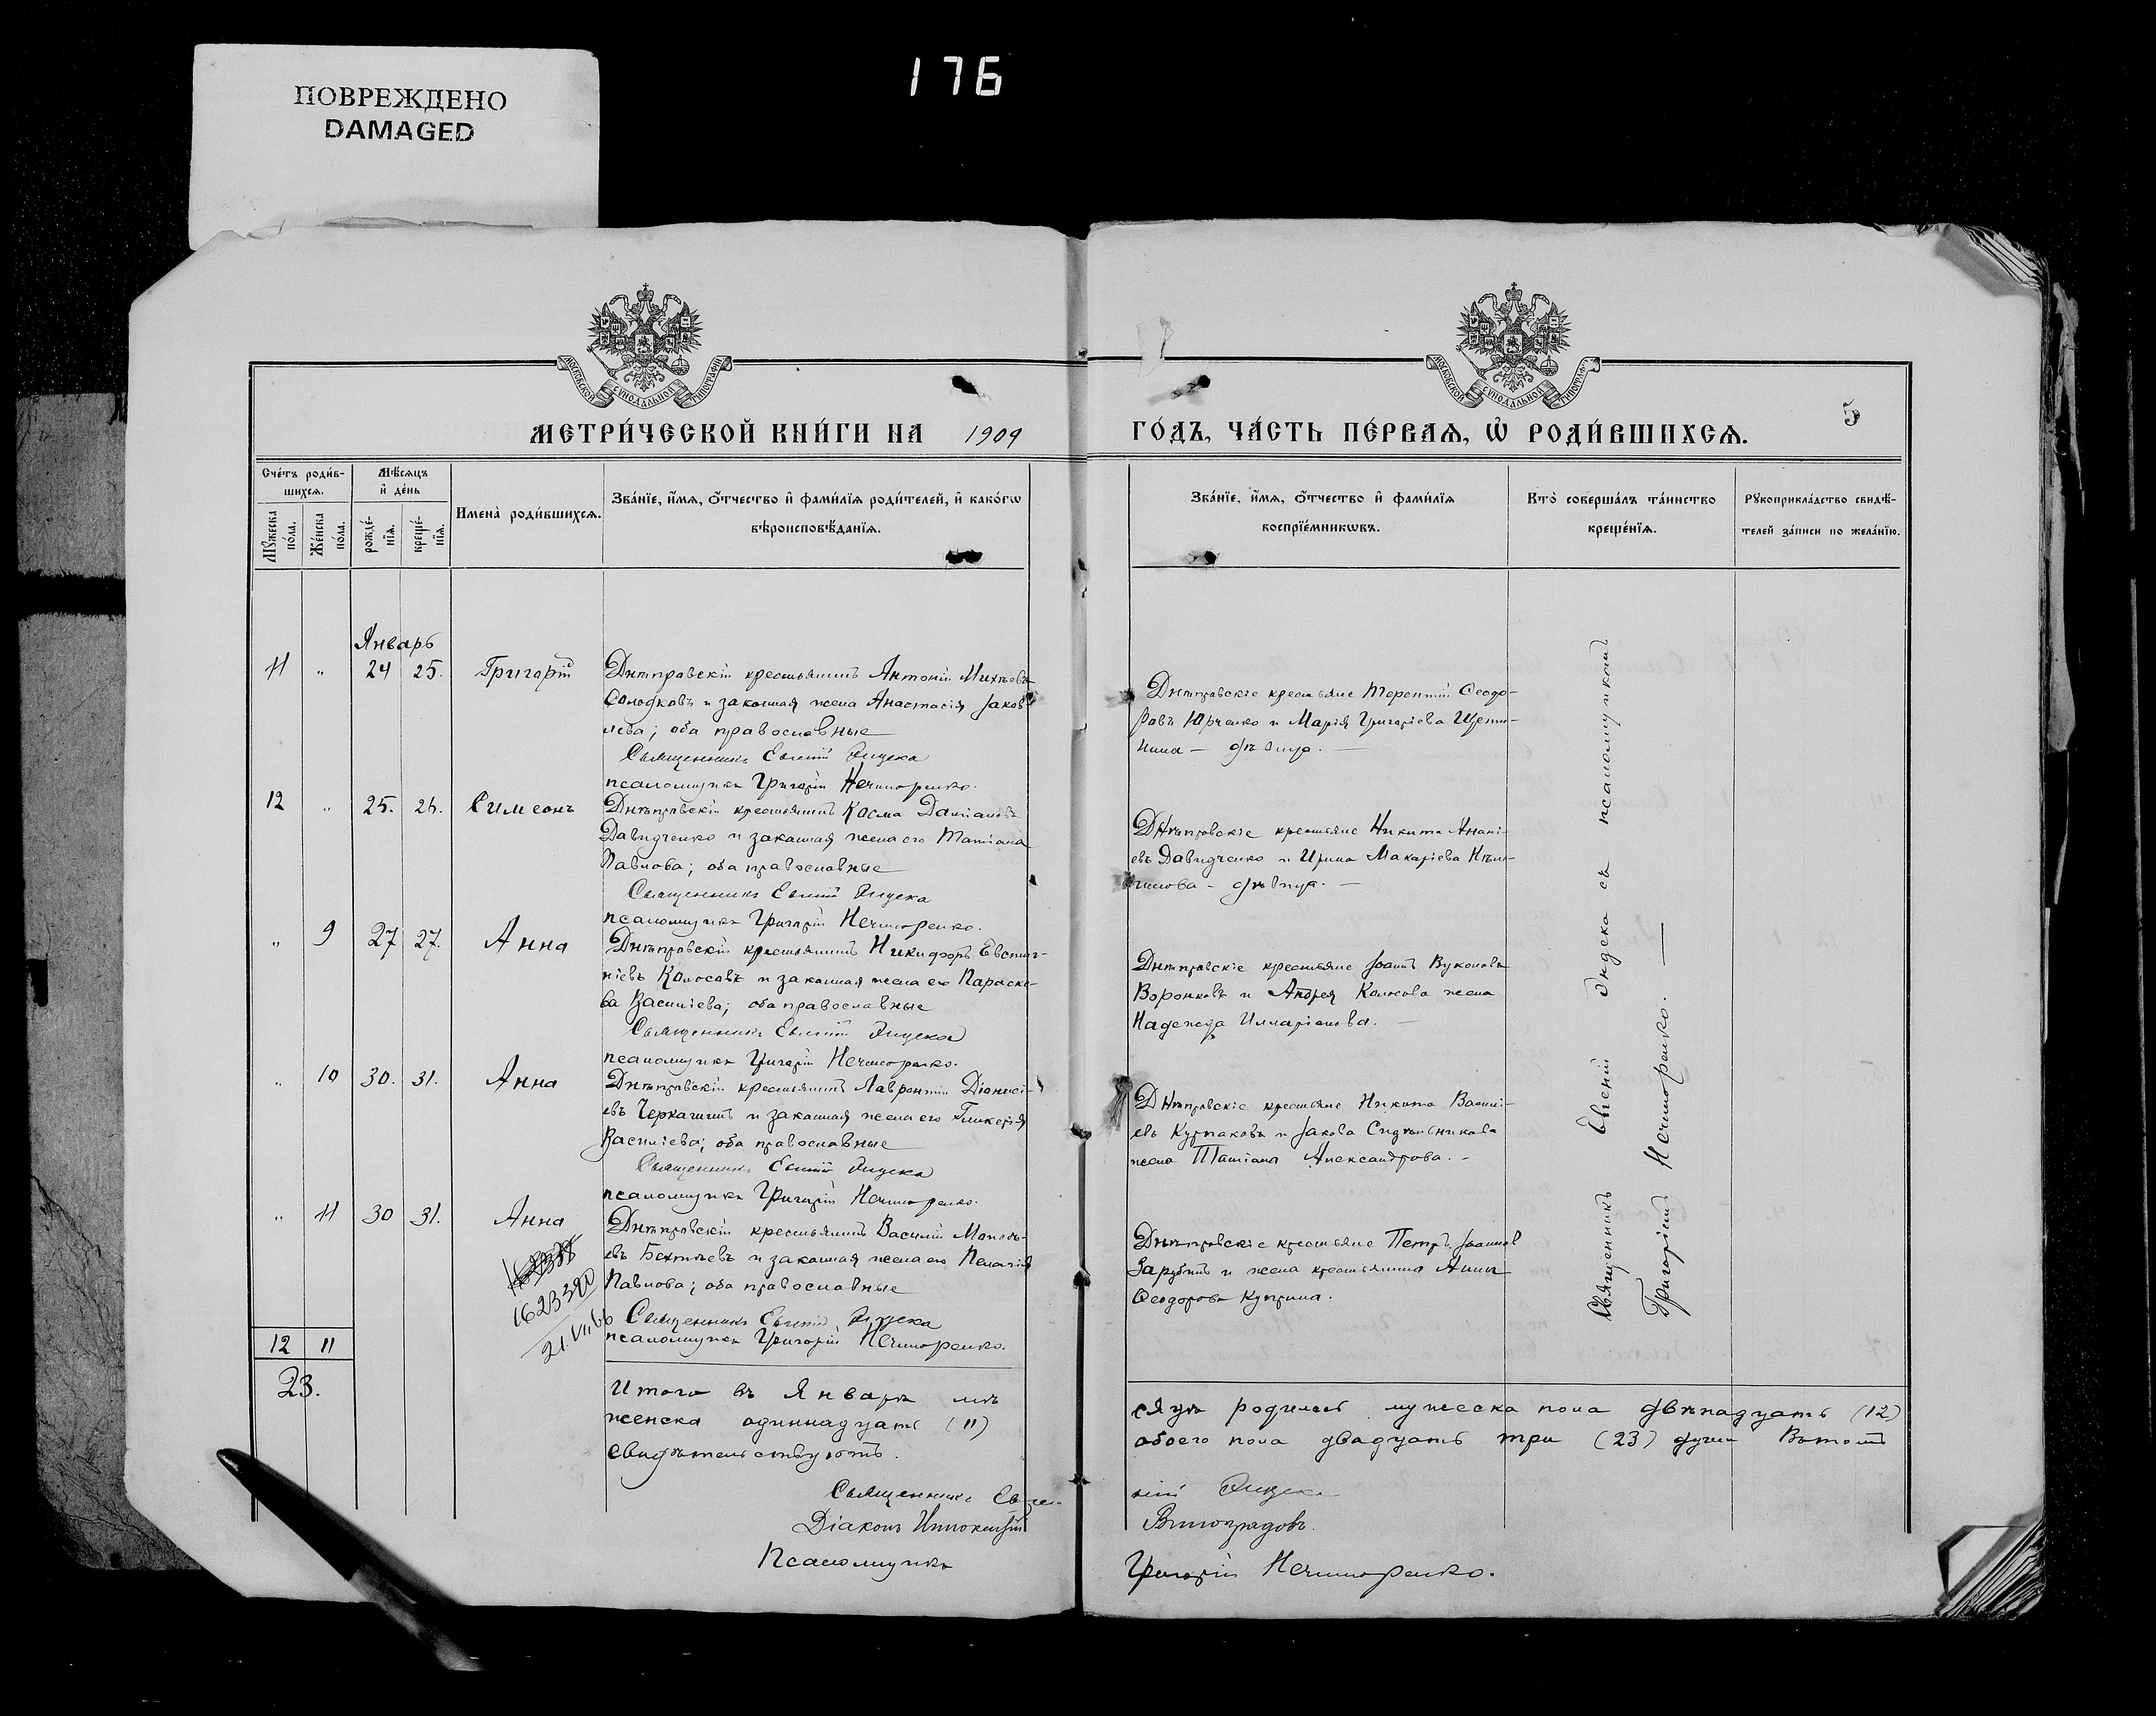 176
ПОВРЕЖДЕНО
DAMAGED
МОСКОВСКОЙ СѴНОДАЛЬНОЙ ТИПОГРАФІИ
МОСКОВСКОЙ СѴНОДАЛЬНОЙ ТИПОГРАФІИ
5
МЕТРИ́ЧЕСКОЙ КНИ́ГИ НА 1909 ГО́ДЪ, ЧА́СТЬ ПЕ́РВАЯ, Ѡ РОДИ́ВШИХСЯ.
Сче́тъ роди́в-
шихся.
Му́жеска по́ла.
Же́нска по́ла.
Мѣ́сяцъ
и҆ де́нь
рожде́-
нїя.
креще́-
нїя.
Имена̀ роди́вшихся.
Зва́нїе, и҆́мя, о҆́тчество и҆ фами́лїя роди́телей, и҆ како́гѡ
вѣроисповѣ́данїя.
Зва́нїе, и҆́мя, о҆́тчество и҆ фами́лїя
воспрїе́мникѡвъ.
Кто̀ соверша́лъ та́инство
креще́нїя.
Рꙋкоприкла́дство свидѣ́-
телей за́писи по жела́нїю.
Январь
11 " 24 25. Григорій
Днѣпровскій крестьянинъ Антоній Михѣевъ
Солодковъ и законная жена Анастасія Іаков-
лева; оба православные
Священникъ Евгеній
псаломщикъ Григорій Нечипоренко.
Днѣпровскіе крестьяне Терентій Ѳеодо-
ровъ Юрченко и Марія Григоріева Щети-
нина — дѣвица. —
12 " 25. 26. Симеонъ
Днѣпровскій крестьянинъ Косма Даміановъ
Давидченко и законная жена его Татіана
Павлова; оба православные
Священникъ Евгеній
псаломщикъ Григорій Нечипоренко.
Днѣпровскіе крестьяне Никита Анані-
евъ Давидченко и Ирина Макаріева
- дѣвица. —
" 9 27 27. Анна
Днѣпровскій крестьянинъ Никифоръ Евстиг-
нѣевъ Колосовъ и законная жена его Параске-
ва Василіева; оба православные
Священникъ Евгеній
псаломщикъ Григорій Нечипоренко.
Днѣпровскіе крестьяне Іоаннъ Вуколовъ
Воронковъ и Андрея Колосова жена
Надежда Илларіонова. —
" 10 30. 31. Анна
Днѣпровскій крестьянинъ Лаврентій Діонисі-
евъ Черкашинъ и законная жена его Гликерія
Василіева; оба православные
Священникъ Евгеній
псаломщикъ Григорій Нечипоренко.
Днѣпровскіе крестьяне Никита Василі-
евъ Курпаковъ и Іакова Сидѣльникова
жена Татіана Александрова. -
" 11 30 31. Анна
1623390
21.VII 66
Днѣпровскій крестьянинъ Василій
Бехтѣевъ и законная жена его Пелагія
Павлова; оба православные
Священникъ Евгеній
псаломщикъ Григорій Нечипоренко.
Днѣпровскіе крестьяне Петръ Іоанновъ
Зарубинъ и жена крестьянина Анна
Ѳеодорова Куприна.
Священникъ Евгеній съ псаломщикомъ
Григоріемъ Нечипоренко. —
12 11
23.
Итого въ Январѣ мѣ
сяцѣ родилось мужеска пола двѣнадцать (12)
женска одиннадцать (11)
обоего пола двадцать три (23) души Въ томъ
свидѣтельствуютъ.
Священникъ Евге
ній
Діаконъ Иннокентій
Виноградовъ.
Псаломщикъ
Григорій Нечипоренко.